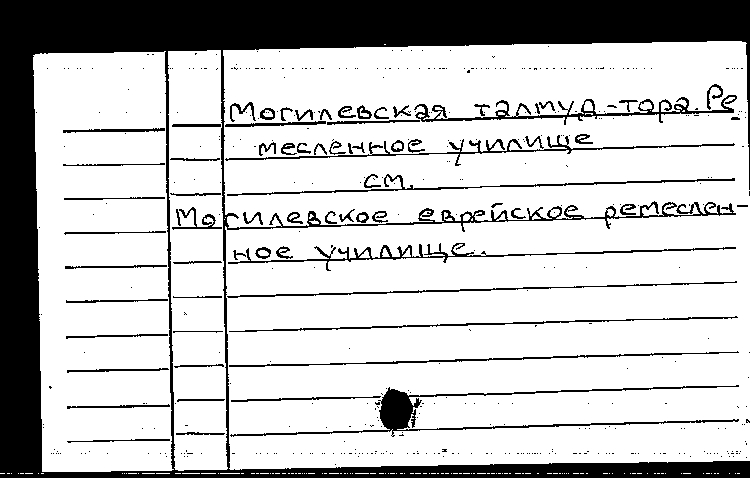 Могилевская талмуд-тора. Ре
месленное училище
см.
Могилевское еврейское ремеслен-
ное училище.